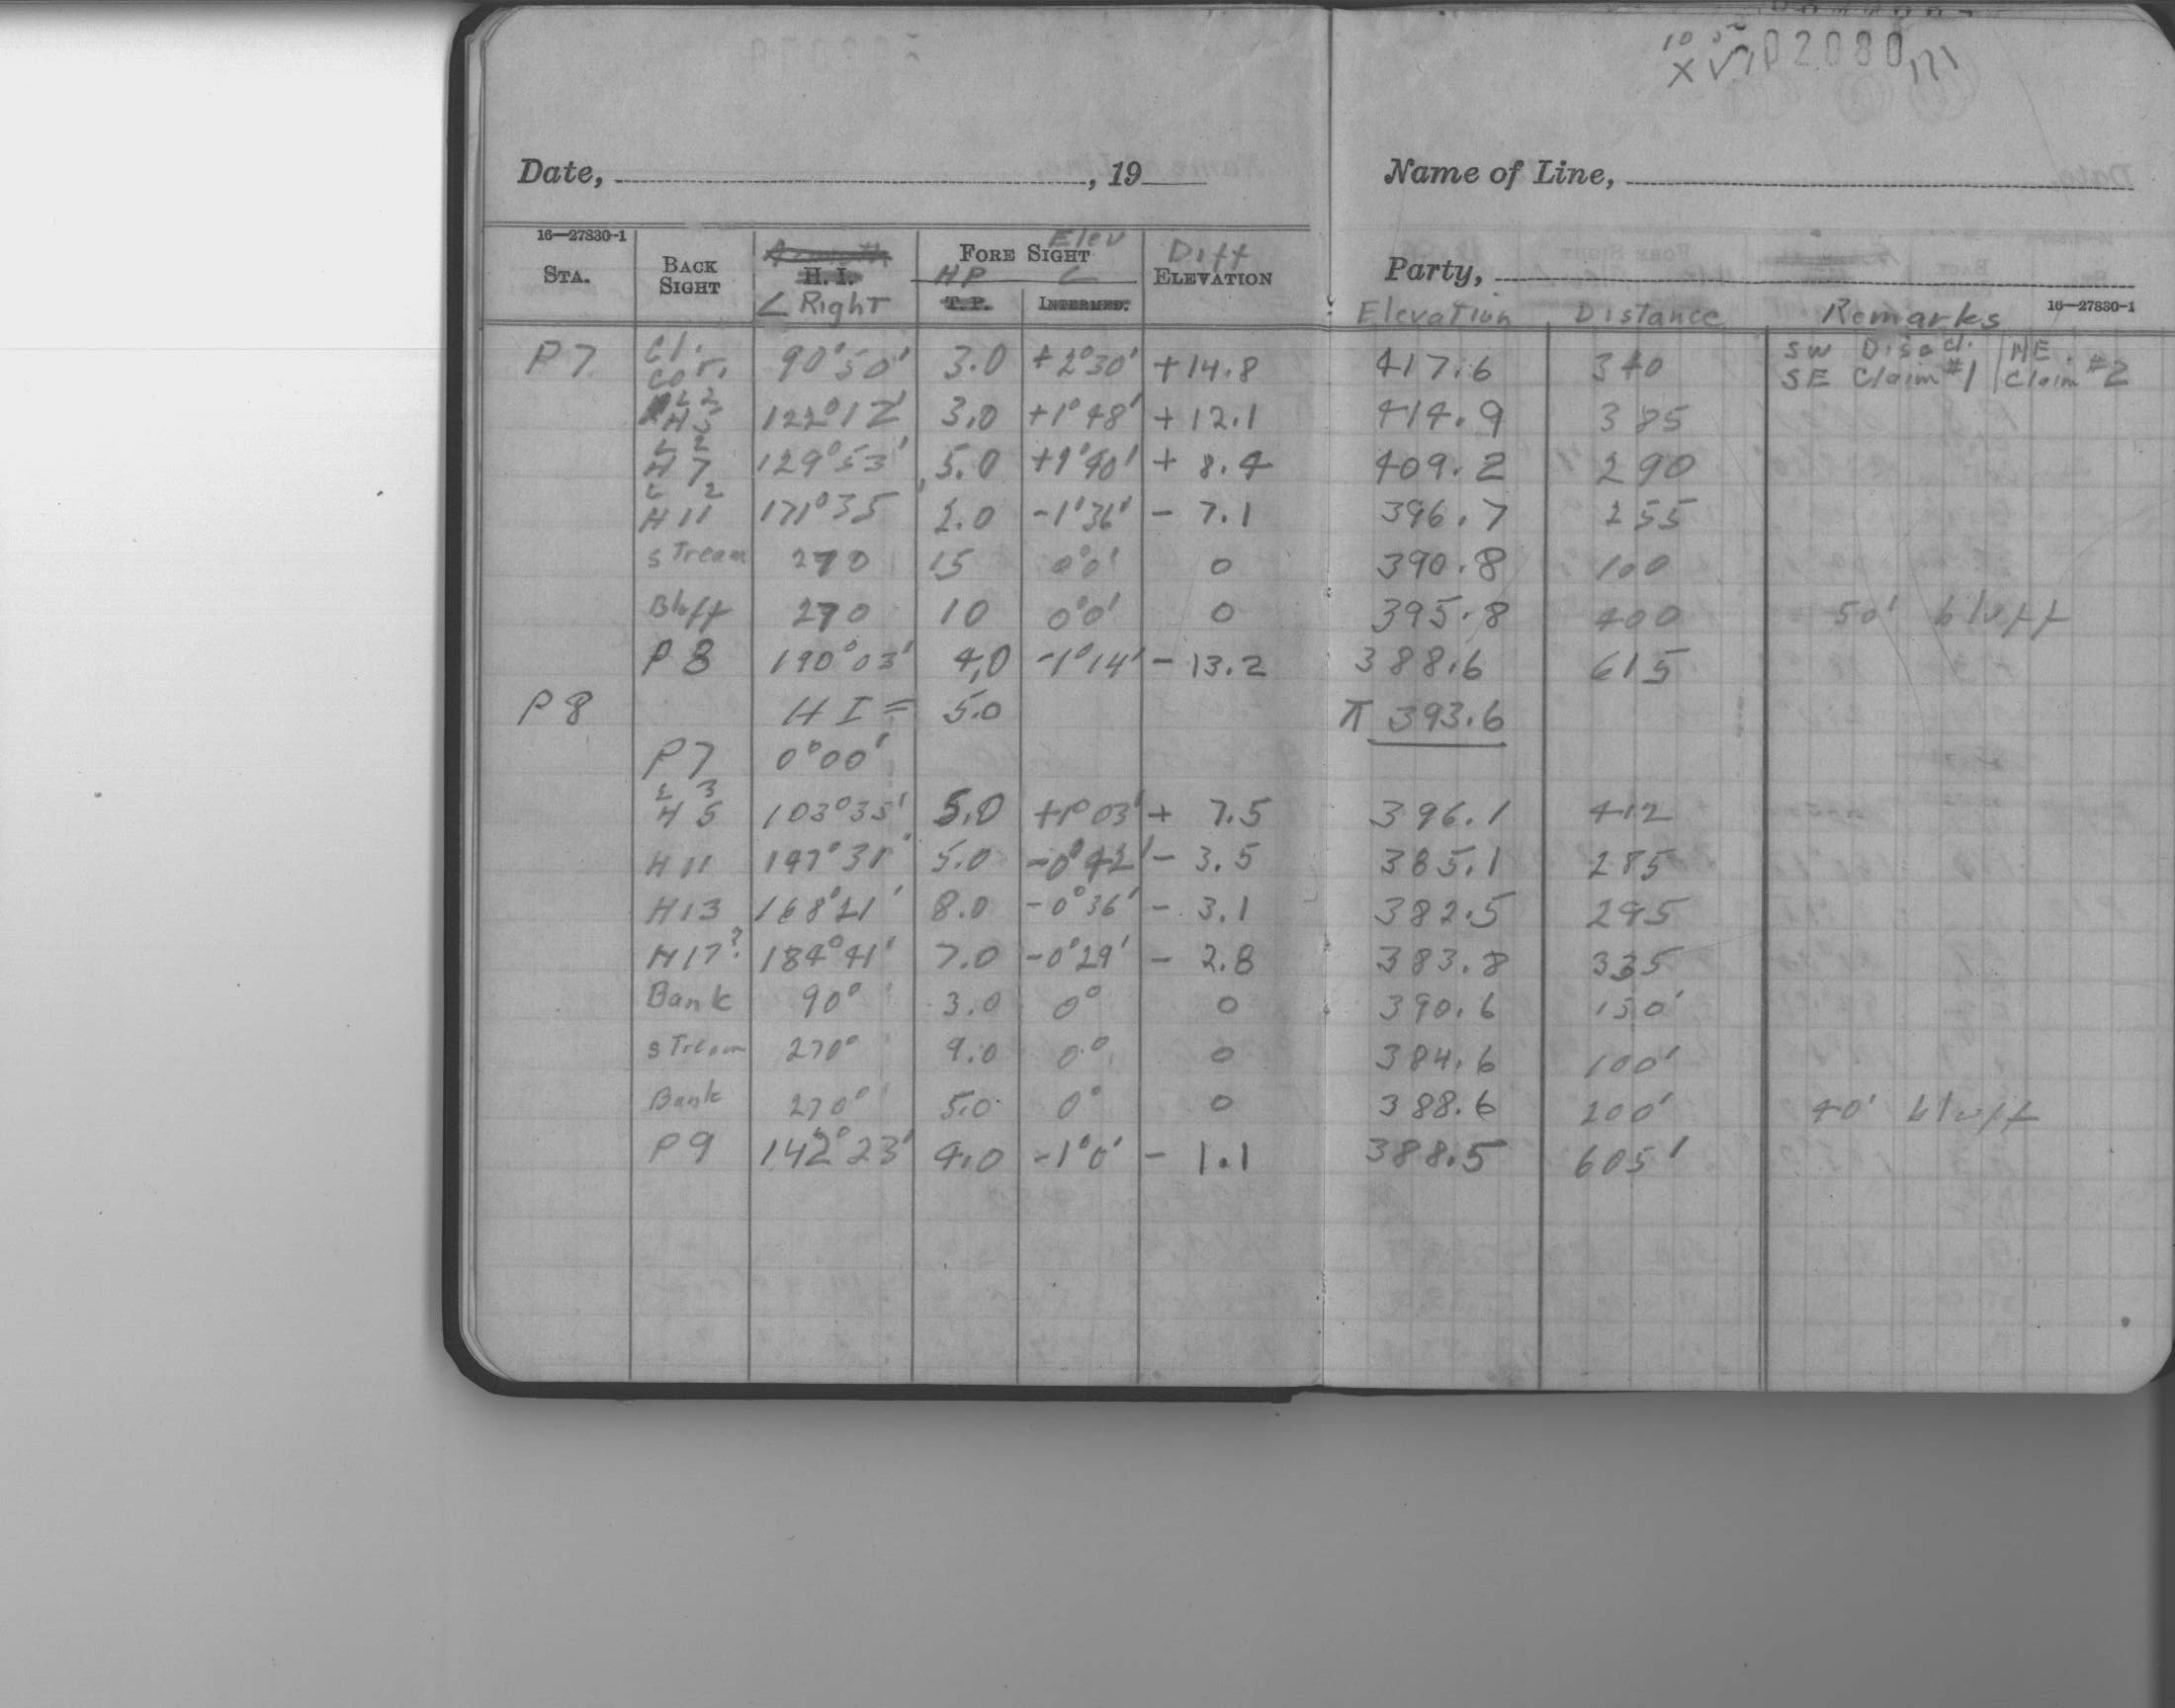 02080
Date, , 19 Name of Line,
16—27830-1 Elev Diff
STA. BACK SIGHT H. I. FORE SIGHT ELEVATION Party,
HP
∠ Right T. P. INTERMED. Elevation Distance Remarks 16—27830-1
P7 Cl. Cor. 90°50' 3.0 +2°30' +14.8 417.6 340 SW Disod. / NE.
SE Claim #1 / Claim #2
122°12' 3.0 +1°48' +12.1 414.9 385
L 2
H 7 129°53' 5.0 +1°40' + 8.4 409.2 290
L 2
H 11 171°35 2.0 -1°36' - 7.1 396.7 255
Stream 270 15 0°0' 0 390.8 100
Bluff 270 10 0°0' 0 395.8 400 50' bluff
P8 190°03' 4.0 -1°14' - 13.2 388.6 615
P8 H I = 5.0 π 393.6
P7 0°00'
L 3
H 5 103°35' 5.0 +1°03' + 7.5 396.1 412
H 11 147°31' 5.0 -0°42' - 3.5 385.1 285
H13 168°21' 8.0 -0°36' - 3.1 382.5 295
H17? 184°41' 7.0 -0°29' - 2.8 383.8 335
Bank 90° 3.0 0° 0 390.6 150'
Stream 270° 9.0 0° 0 384.6 100'
Bank 270° 5.0 0° 0 388.6 200' 40' bluff
P9 142°23' 4.0 -1°0' - 1.1 388.5 605'